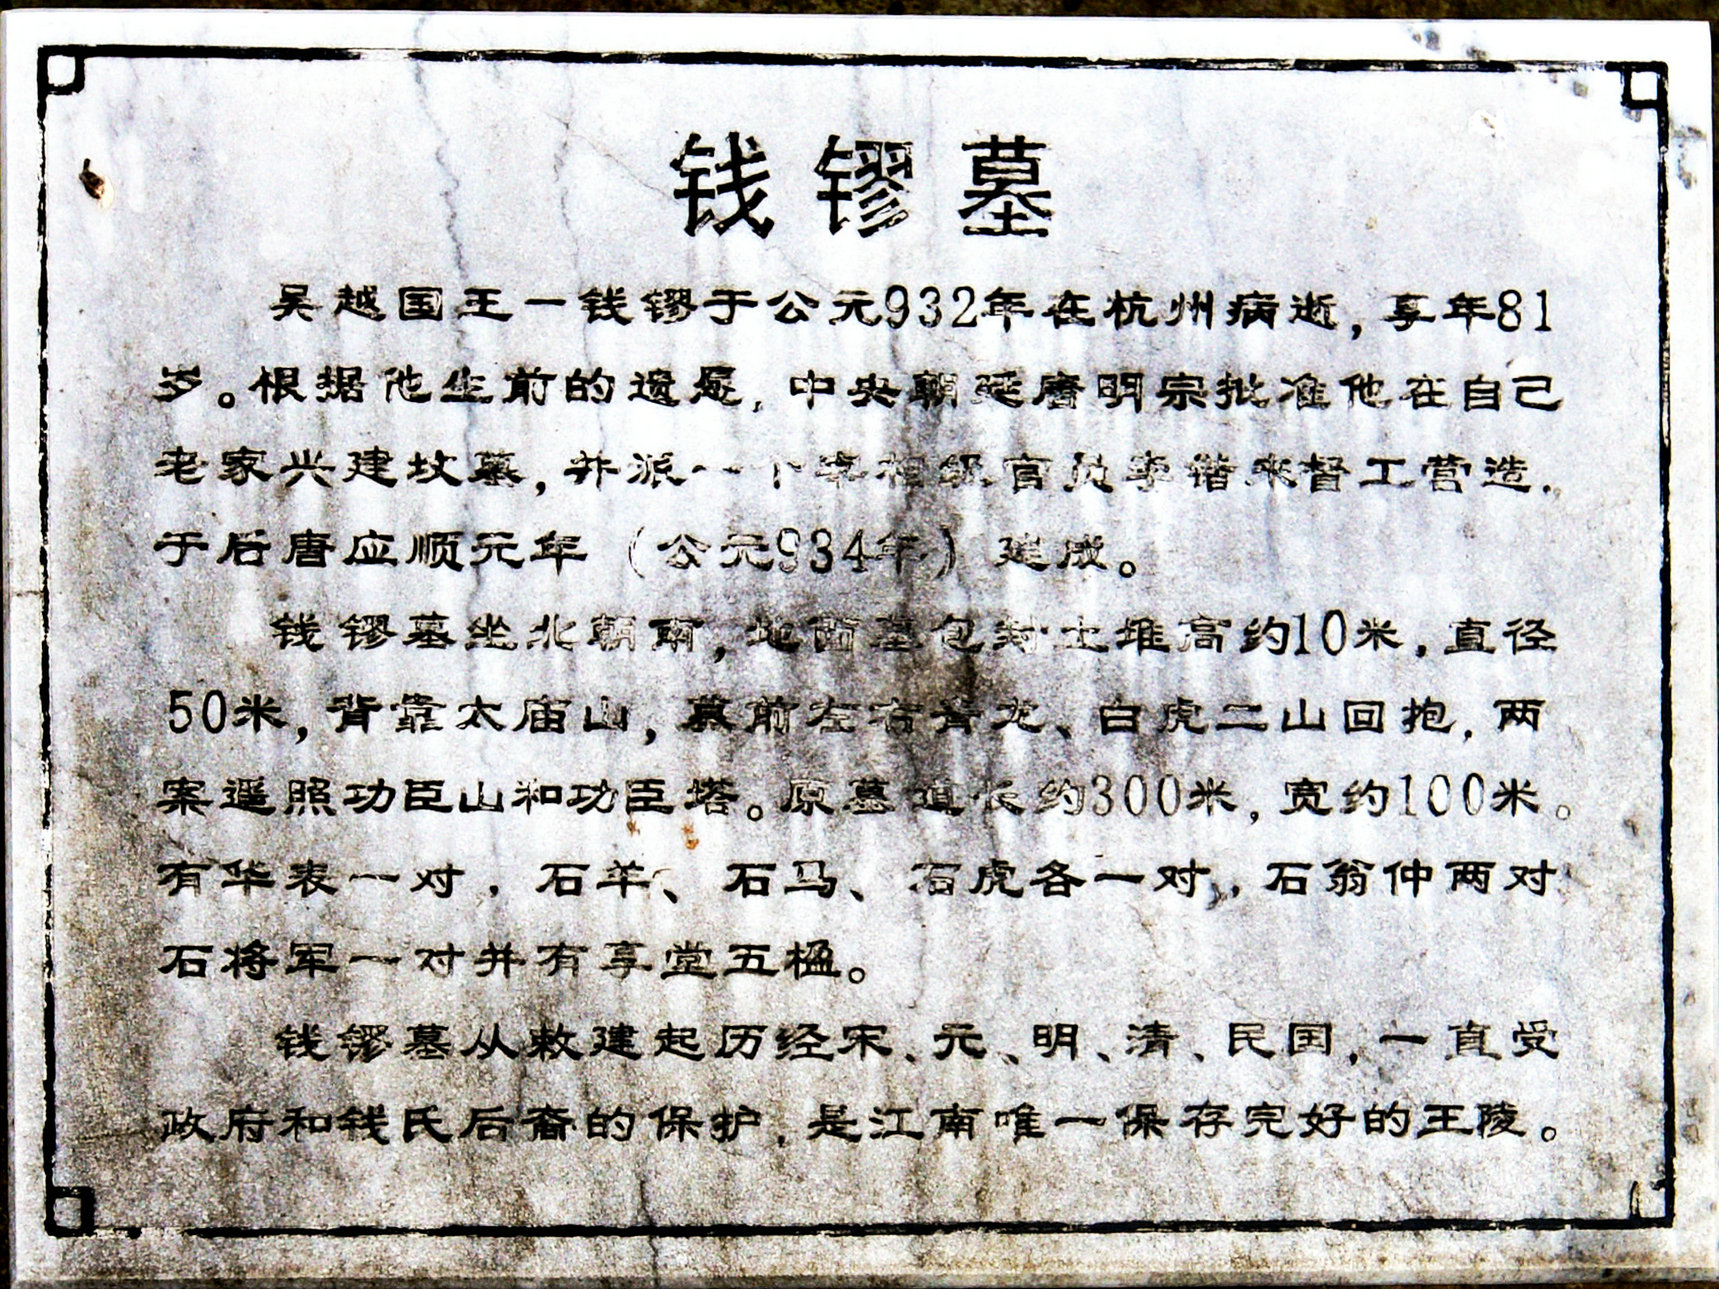 钱镠墓
吴越国王一钱镠于公元932年在杭州病逝，享年81
岁。根据他生前的遗愿，中央朝廷唐明宗批准他在自己
老家兴建坟墓，并派一个宰相级官员李锴来督工营造，
于后唐应顺元年（公元934年）建成。
钱镠墓坐北朝南，地面墓包封土堆高约10米，直径
50米，背靠太庙山，墓前左右青龙、白虎二山回抱，两
案遥照功臣山和功臣塔。原墓道长约300米，宽约100米。
有华表一对，石羊、石马、石虎各一对，石翁仲两对
石将军一对并有享堂五楹。
钱镠墓从敕建起历经宋、元、明、清、民国，一直受
政府和钱氏后裔的保护，是江南唯一保存完好的王陵。